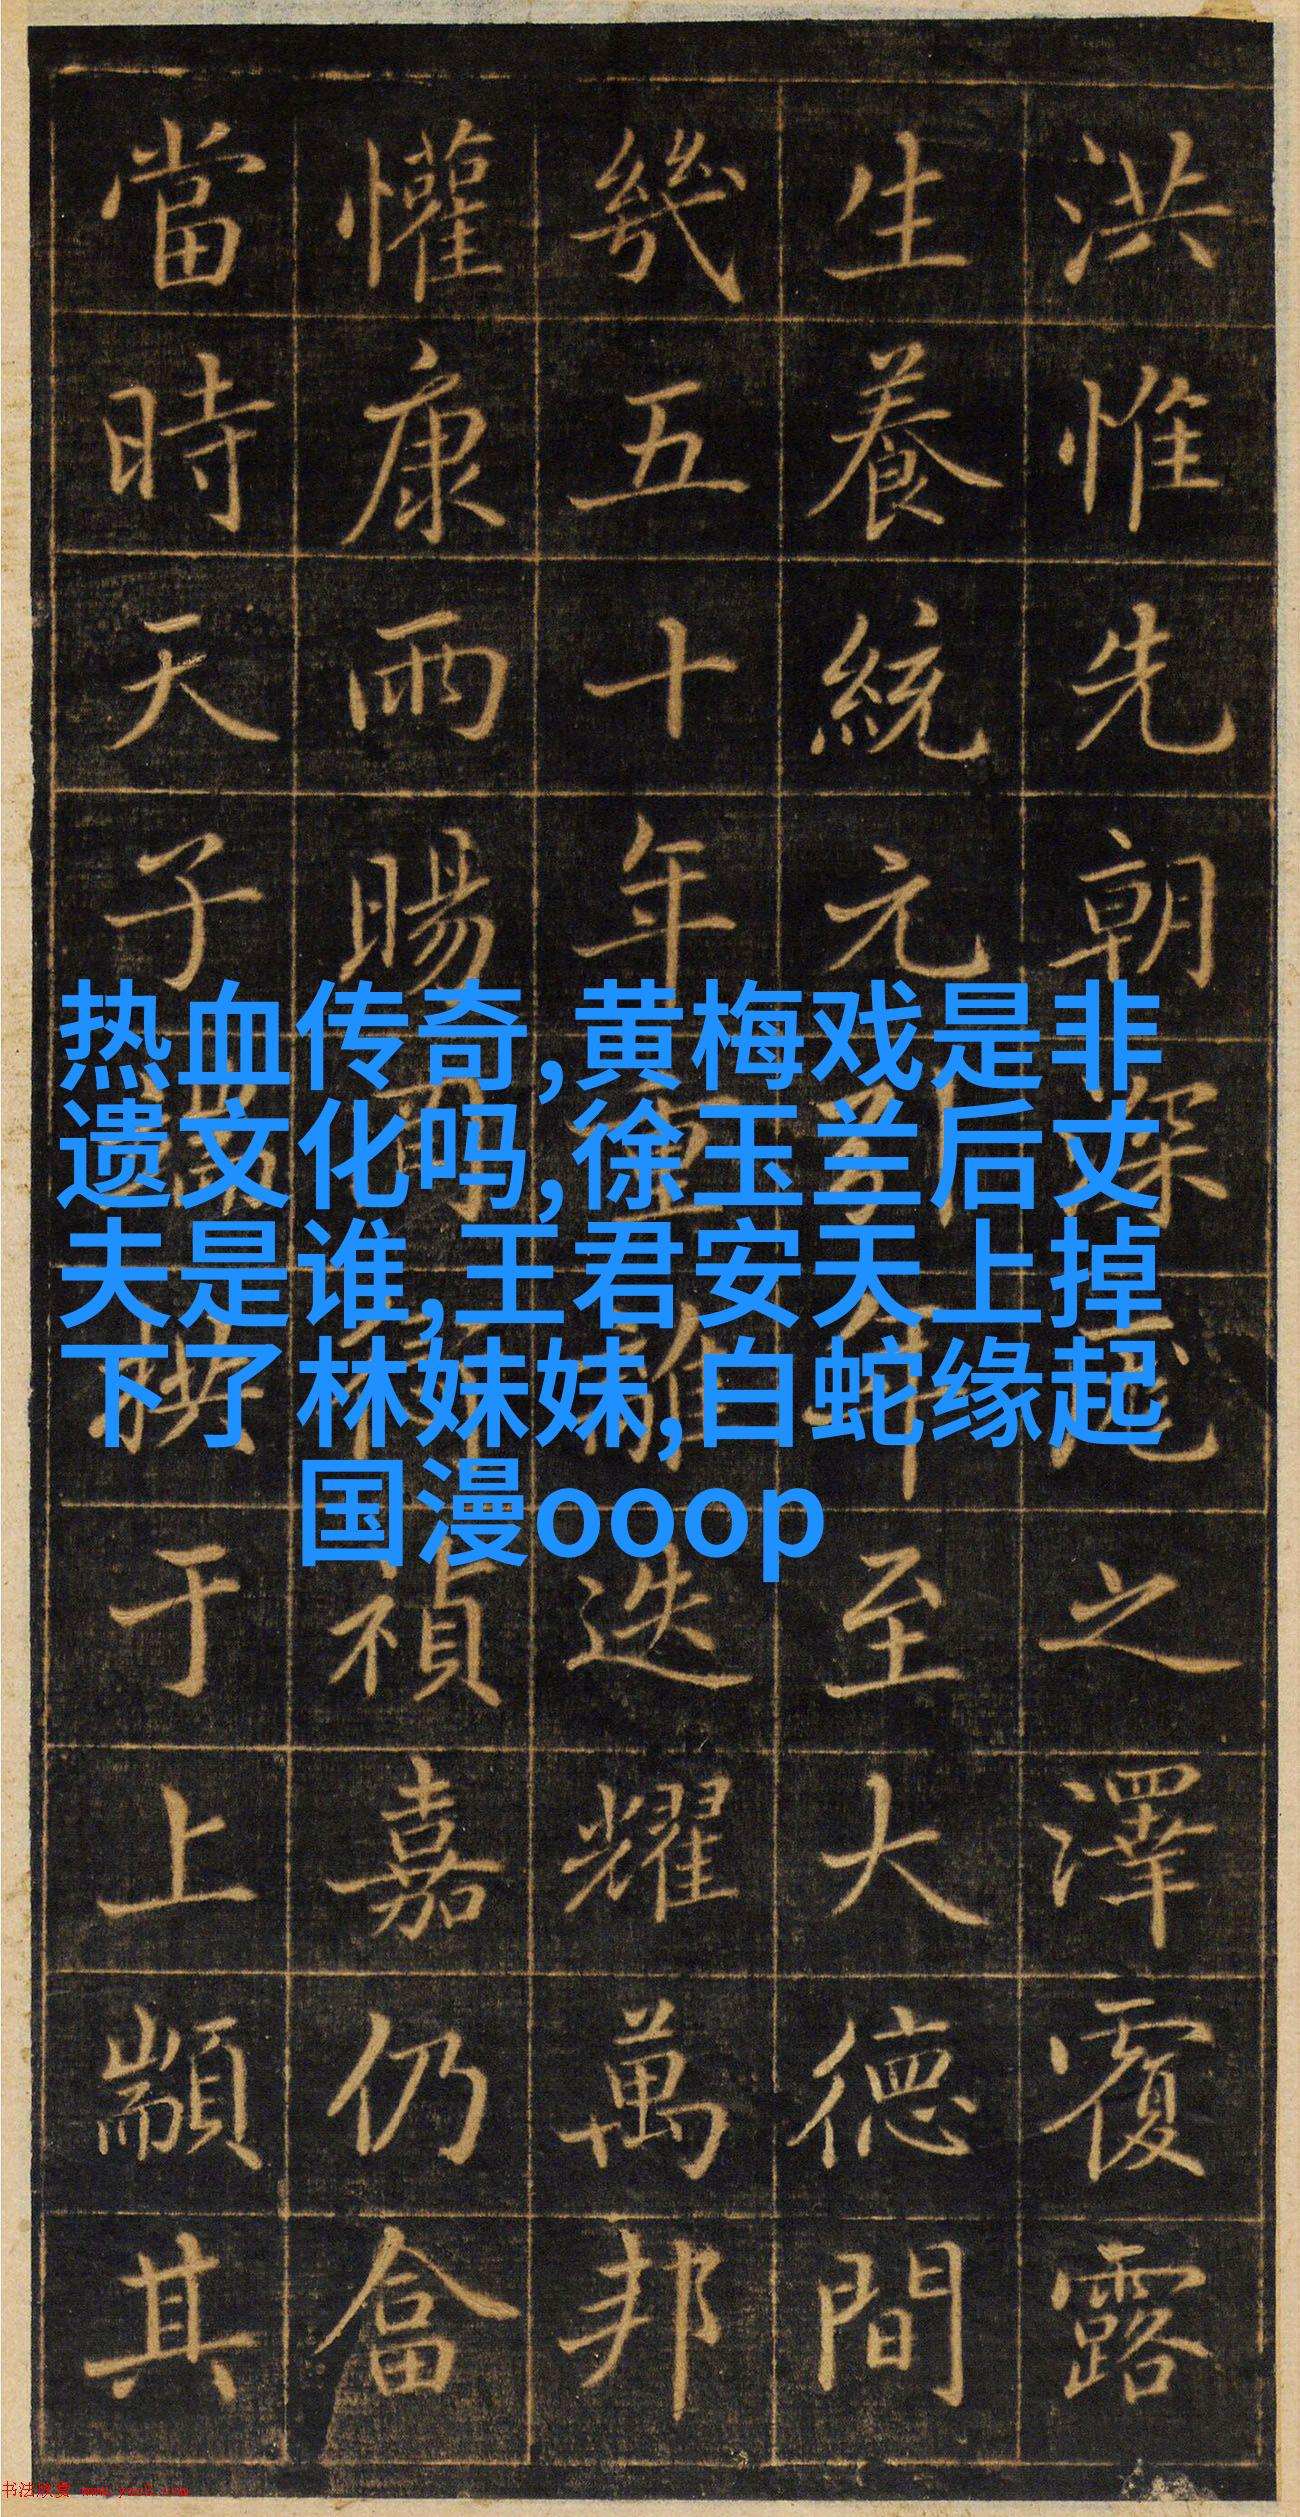 洪惟先朝深之澤覆露
生養統元至大德間
幾五十年重離迭耀萬邦
懽康雨暘禎嘉仍畣
當時天子于上顒其
热血传奇,黄梅戏是非
遗文化吗,徐玉兰后丈
夫是谁,王君安天上掉
下了林妹妹,白蛇缘起
国漫ooop
书法欣赏 www.yac8.com